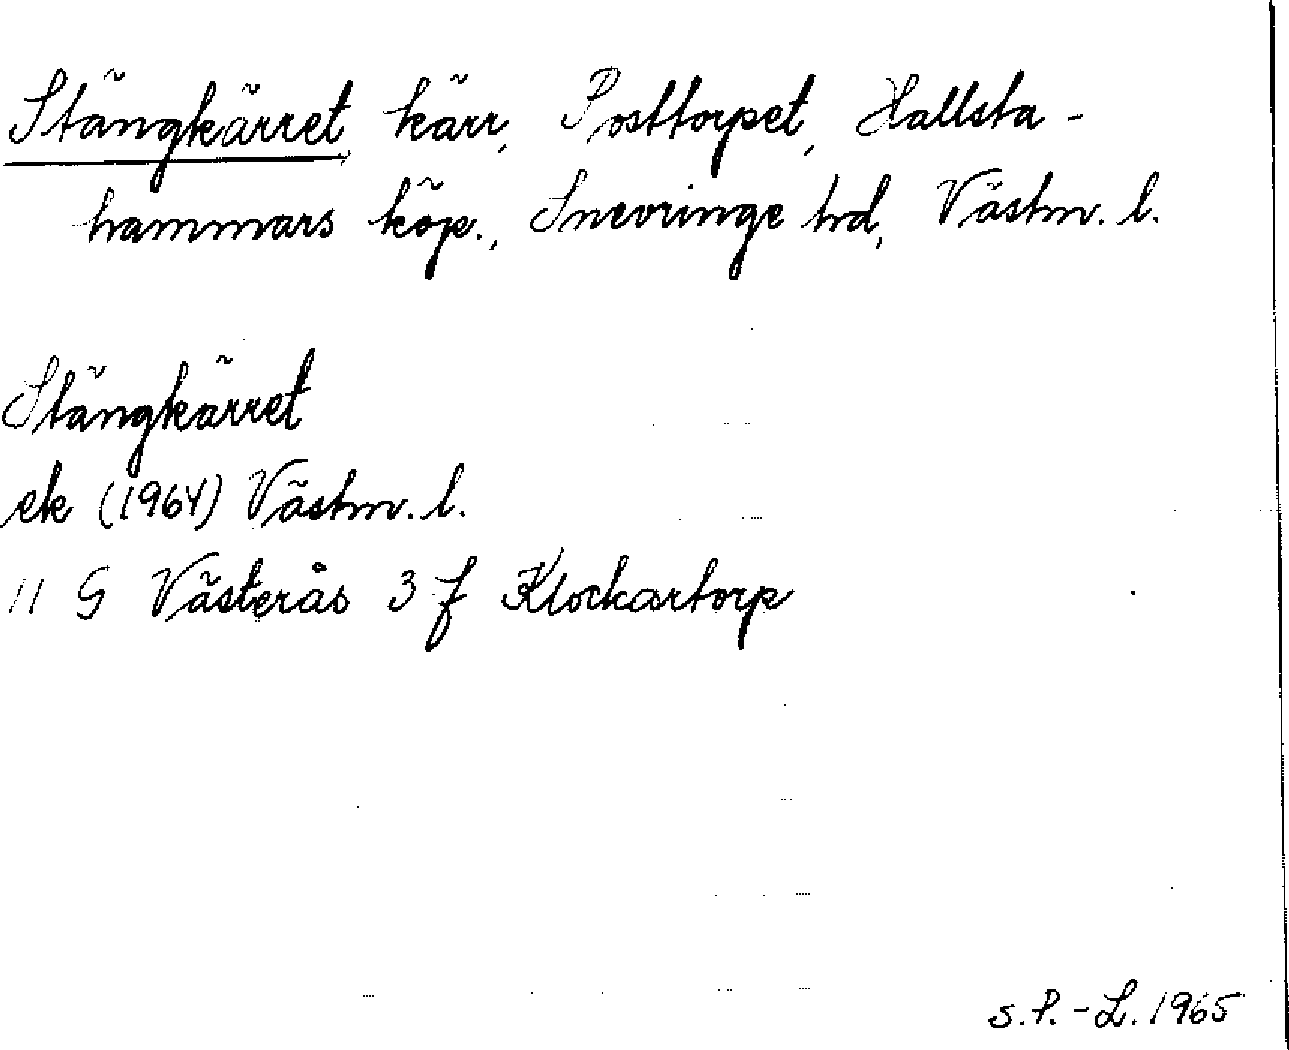 Stängkärret, kärr, Posttorpet, Hallsta-
hammars köp., Snevringe hd, Västm. l.
Stängkärret
ek (1964) Västm. l.
11 G Västerås 3 f Klockartorp
S.P.-L. 1965